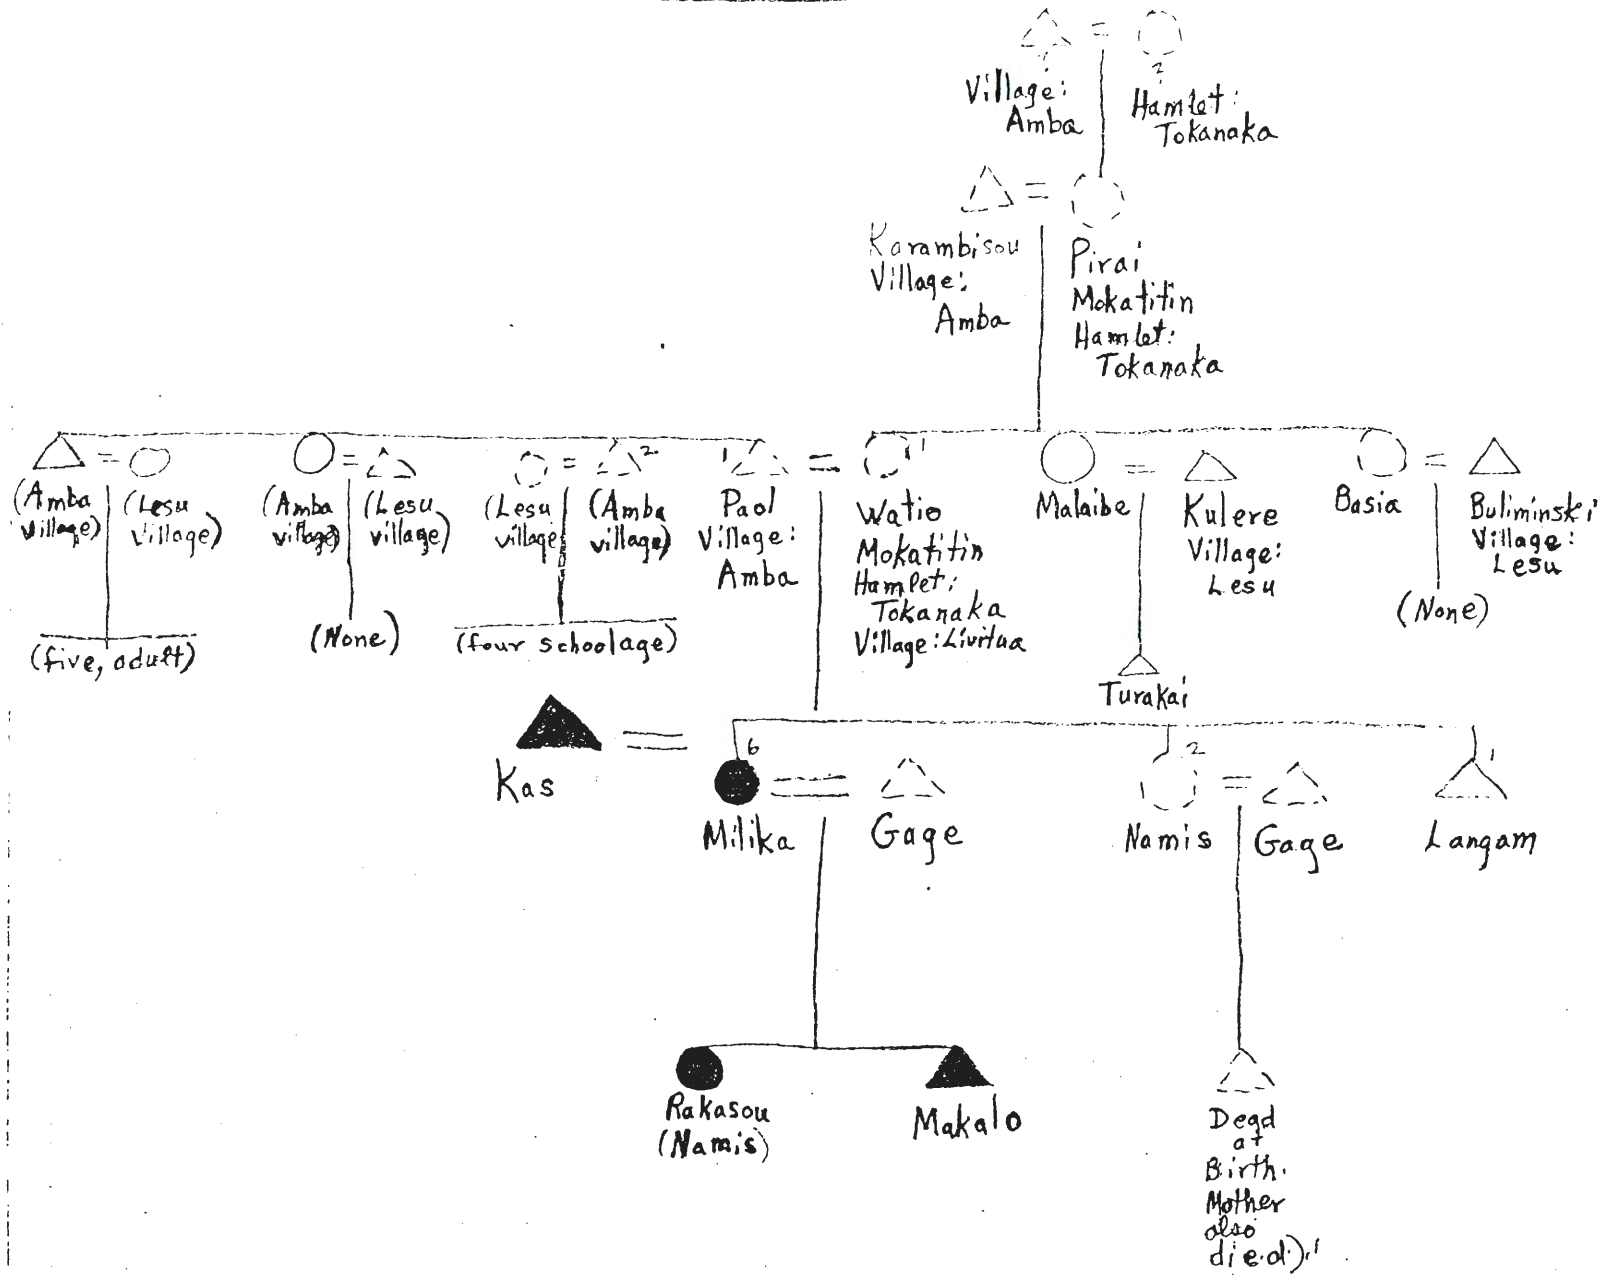 2
Village:
Amba
Hamlet:
Tokanaka
Karambisou
Village:
Amba
Pirai
Mokatitin
Hamlet:
Tokanaka
(Amba
village)
(Lesu
village)
(Amba
village)
(Lesu
village)
(Lesu
village
2
(Amba
village)
1
Paol
Village:
Amba
1
Watio
Mokatitin
Hamlet:
Tokanaka
Village: Livitua
Malaibe
Kulere
Village:
Lesu
Basia
Buliminski
Village:
Lesu
(five, adult)
(None)
(four schoolage)
Turakai
(None)
Kas
6
Milika
Gage
2
Namis
Gage
1
Langam
Rakasou
(Namis)
Makalo
Dead
at
Birth.
Mother
also
died).